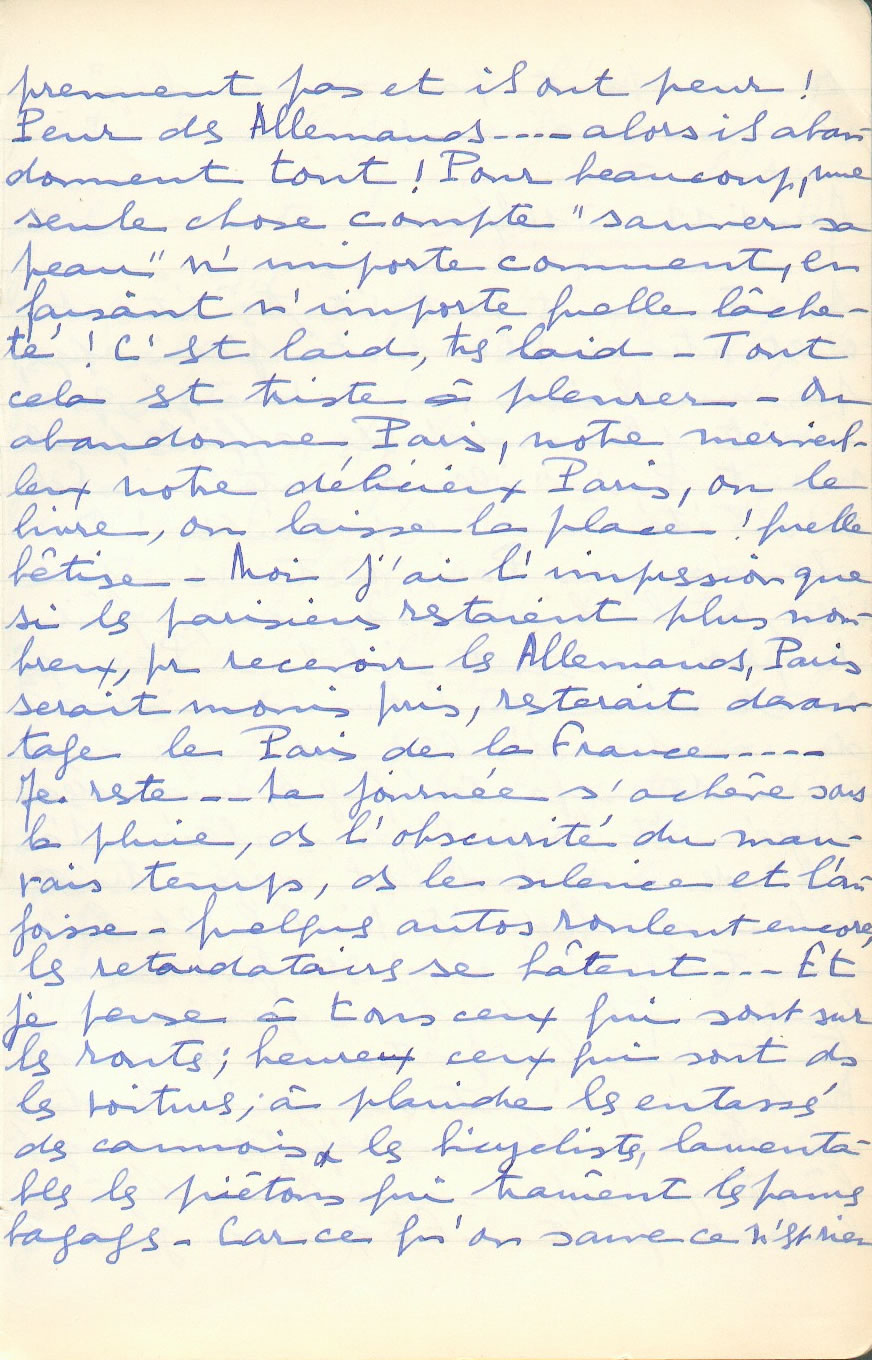 prennent pas et ils ont peur !
Peur des Allemands ---- alors ils aban-
donnent tout ! Pour beaucoup, une
seule chose compte "sauver sa
peau" n'importe comment, en
faisant n'importe quelle lâche-
té ! C'est laid, très laid - Tout
cela est triste à pleurer - On
abandonne Paris, notre merveil-
leux notre délicieux Paris, on le
livre, on laisse la place ! quelle
bêtise - Moi j'ai l'impression que
si les parisiens restaient plus nom-
breux, pr recevoir les Allemands, Paris
serait moins pris, resterait davan-
tage le Paris de la France ----
Je reste -- La journée s'achève sous
la pluie, ds l'obscurité du mau-
vais temps, ds le silence et l'an-
goisse - quelques autos roulent encore,
les retardataires se hâtent --- Et
je pense à tous ceux qui sont sur
les routes ; heureux ceux qui sont ds
les voitures ; à plaindre les entassés
des camions & les bicyclistes, lamenta-
bles les piétons qui traînent les pauvres
bagages - Car ce qu'on sauve ce n'est rien